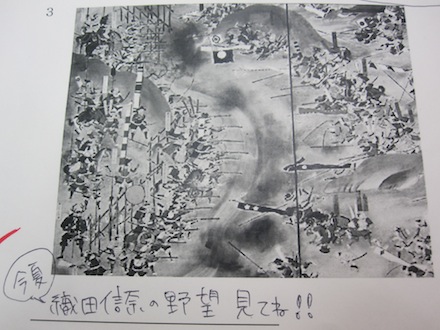 3
今夏
織田信奈の野望 見てね!!